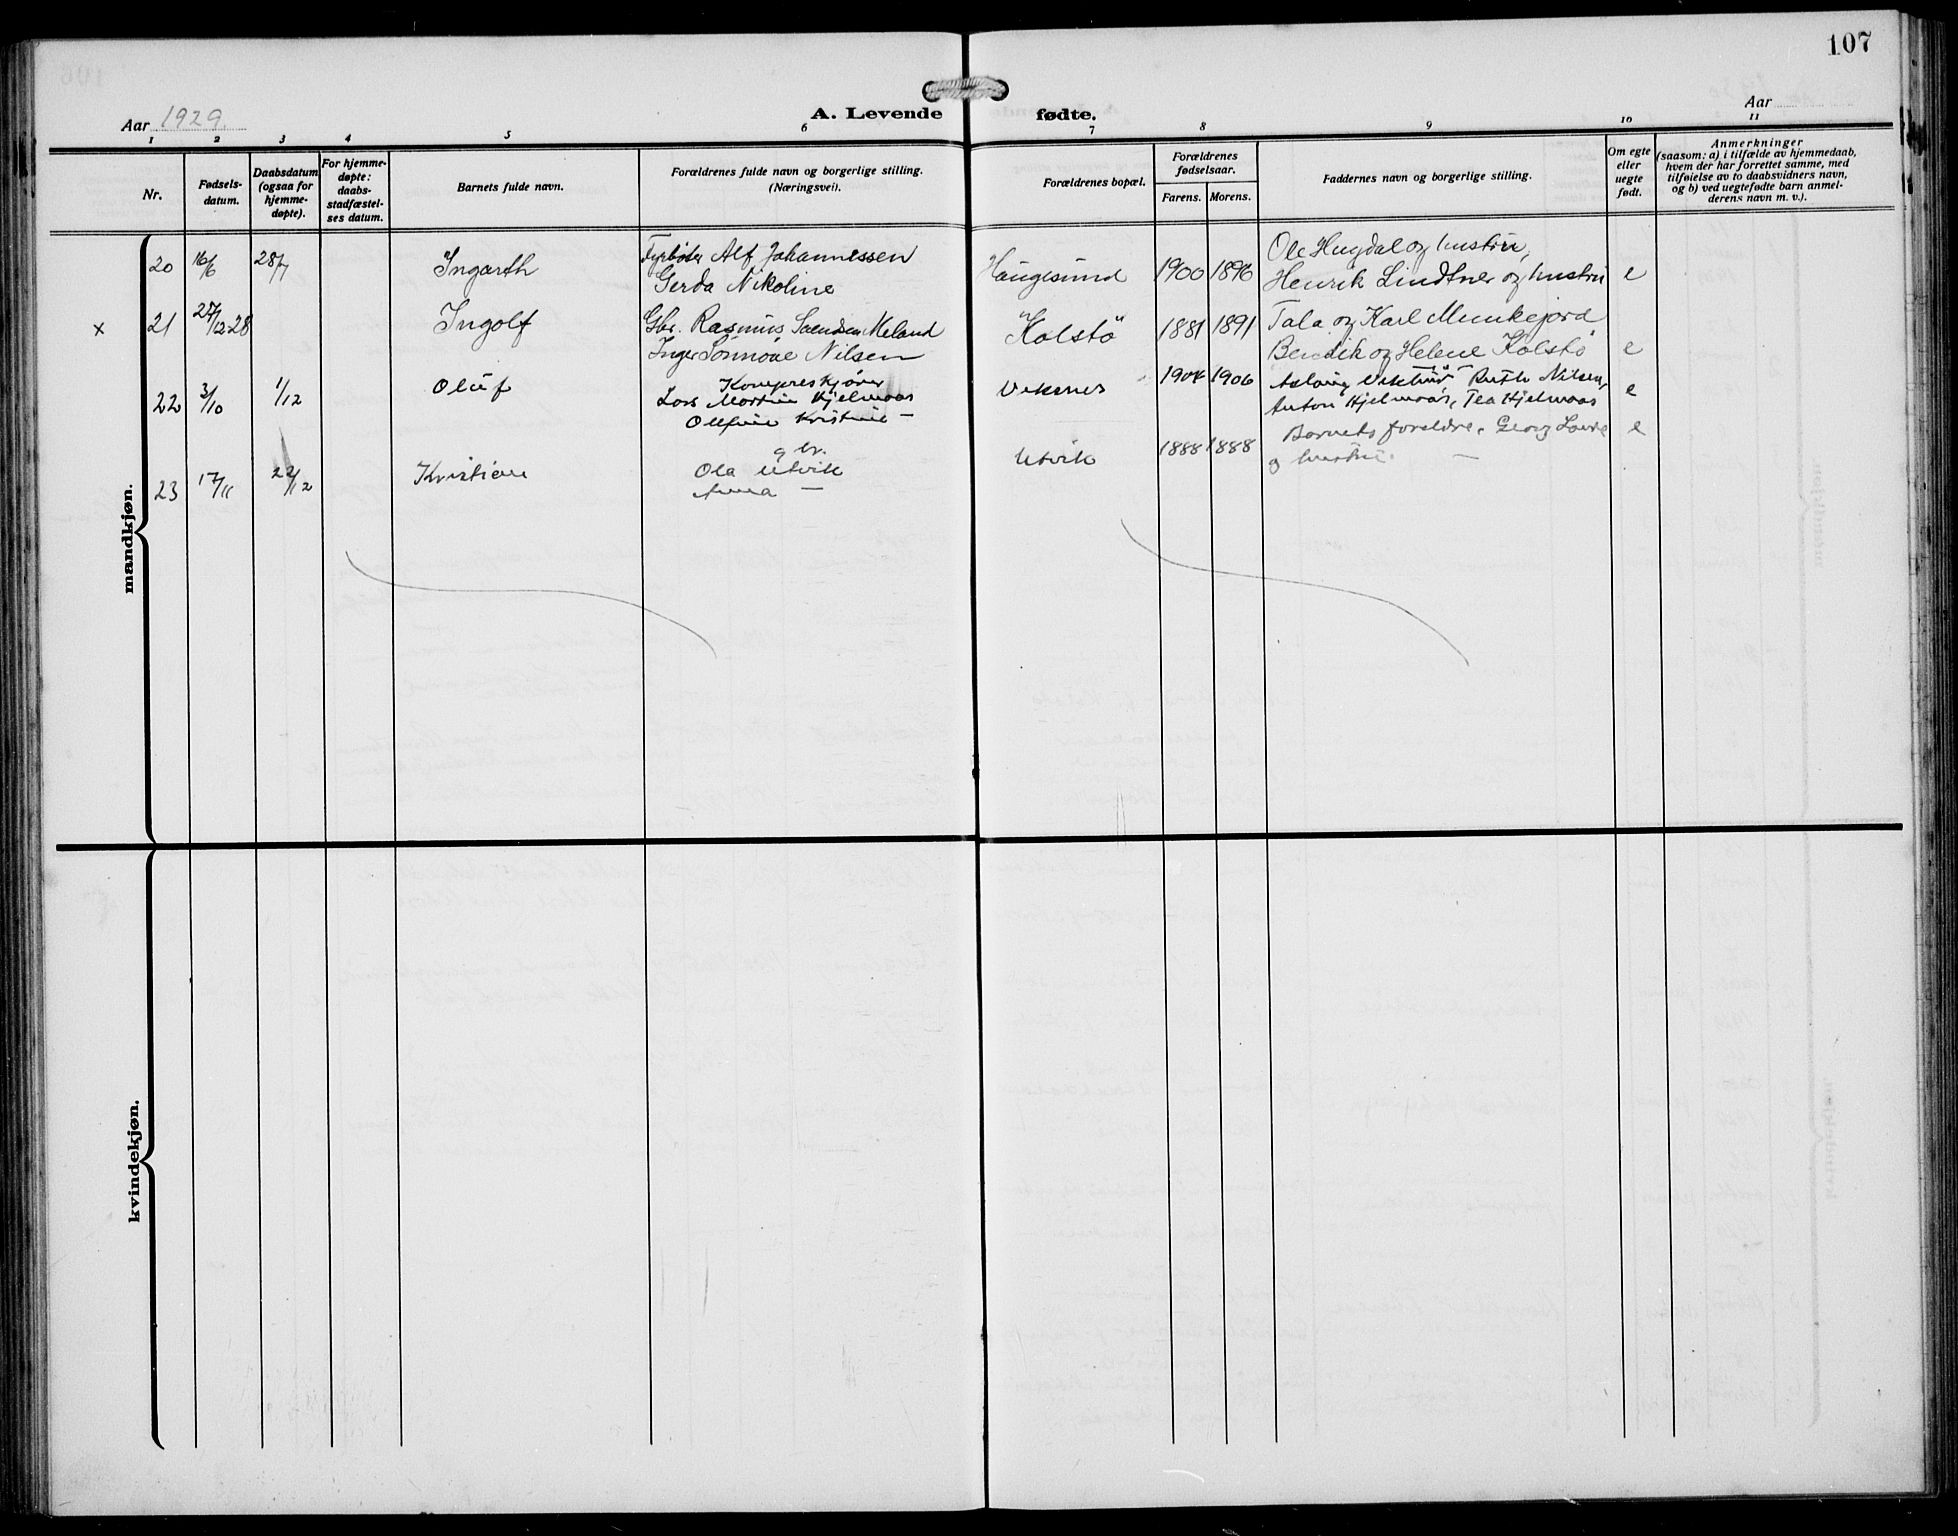 107
Aar 1929.
A. Levende fødte.
Aar
1 2 3 4 5 6 7 8 9 10 11
Nr.
Fødsels-
datum.
Daabsdatum
(ogsaa for
hjemme-
døpte).
For hjemme-
døpte:
daabs-
stadfæstel-
ses datum.
Barnets fulde navn.
Forældrenes fulde navn og borgerlige stilling.
(Næringsvei).
Forældrenes bopæl.
Forældrenes
fødselsaar.
Farens. Morens.
Faddernes navn og borgerlige stilling.
Om egte
eller
uegte
født.
Anmerkninger
(saasom: a) i tilfælde av hjemmedaab,
hvem der har forrettet samme, med
tilføielse av to daabsvidners navn,
og b) ved uegtefødte barn anmel-
derens navn m. v.).
mandkjøn.
20 16/6 28/7 Ingarth Fyrbøter Alf Johannessen Haugesund 1900 1896 Ole Hugdal og hustru, e
Gerda Nikoline Henrik Lindtner og hustru
x 21 27/12 28 Ingolf Gbr. Rasmus Meland Kolstö 1881 1891 Tala og Karl Munkejord e
Inger Nilsen Bendik og Helene Kolstö
22 3/10 1/12 Oluf Lars Martin Hjelmaas 1906 Ruth Nilsen, e
Kristine — Anton Hjelmaas, Tea Hjelmaas
23 17/11 22/12 Kristian gbr. Utvik 1888 1888 Barnets foreldre, Georg e
Ola Utvik og hustru. —
Anna —
kvindekjøn.